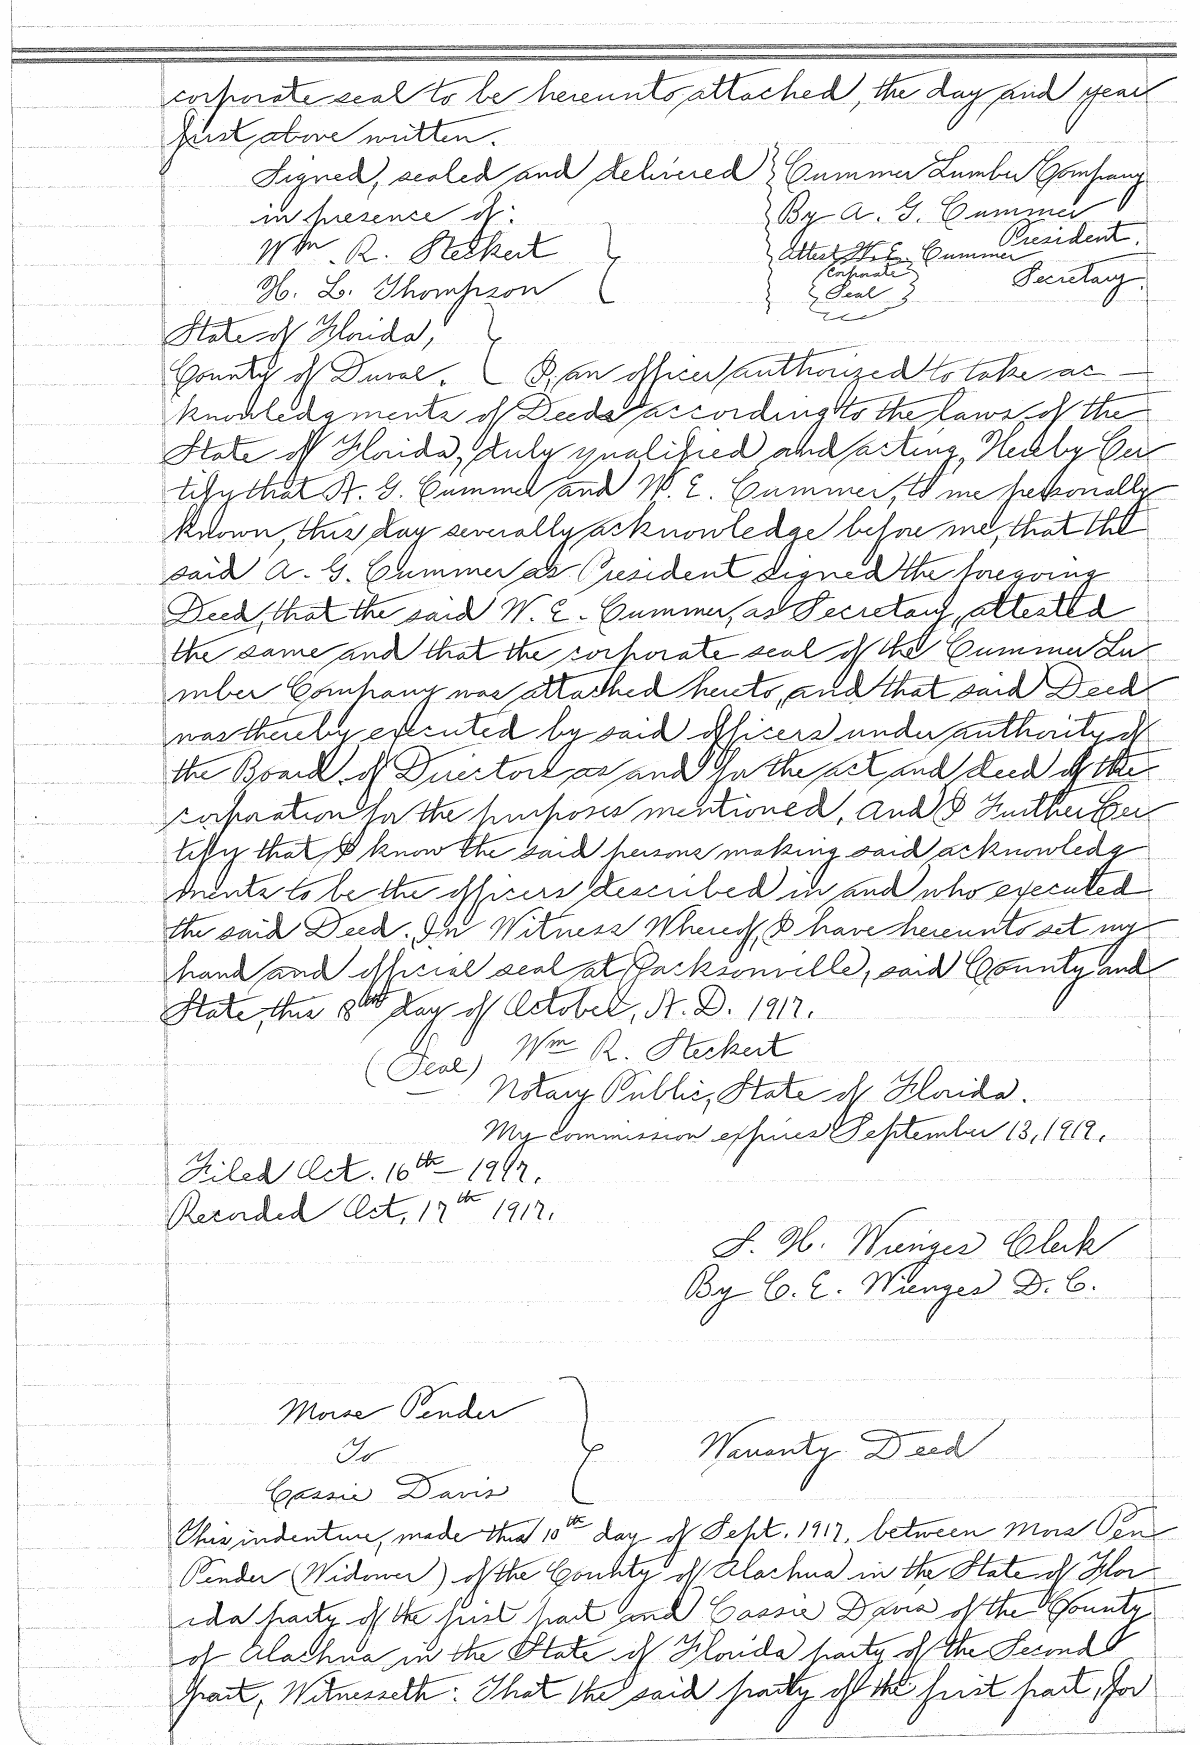 corporate seal to be hereunto attached, the day and year
first above written.
Signed, sealed and delivered Cummer Lumber Company
in presence of: By A. G. Cummer
Wm. R. Steckert President.
Attest W. E. Cummer
H. L. Thompson Corporate Secretary.
Seal
State of Florida,
County of Duval. I, an officer authorized to take ac-
knowledgments of Deeds according to the laws of the
State of Florida, duly qualified and acting, Hereby Cer
tify that A. G. Cummer and W. E. Cummer, to me personally
known, this day severally acknowledge before me, that the
said A. G. Cummer as President signed the foregoing
Deed, that the said W. E. Cummer, as Secretary, attested
the same and that the corporate seal of the Cummer Lu
mber Company was attached hereto, and that said Deed
was thereby executed by said officers under authority of
the Board of Directors as and for the act and deed of the
corporation for the purposes mentioned. And I Further Cer
tify that I know the said persons making said acknowledg
ments to be the officers described in and who executed
the said Deed. In Witness Whereof, I have hereunto set my
hand and official seal at Jacksonville, said County and
State, this 8th day of October, A. D. 1917.
(Seal) Wm R. Steckert
Notary Public, State of Florida.
My commission expires September 13, 1919.
Filed Oct. 16th 1917.
Recorded Oct. 17th 1917.
S. H. Wienges Clerk
By C. E. Wienges D. C.
Morse Pender
To Warranty Deed
Cassie Davis
This indenture, made this 10th day of Sept. 1917, between Mors Pen
Pender (Widower) of the County of Alachua in the State of Flor
ida party of the first part and Cassie Davis of the County
of Alachua in the State of Florida party of the Second
part, Witnesseth: That the said party of the first part, for